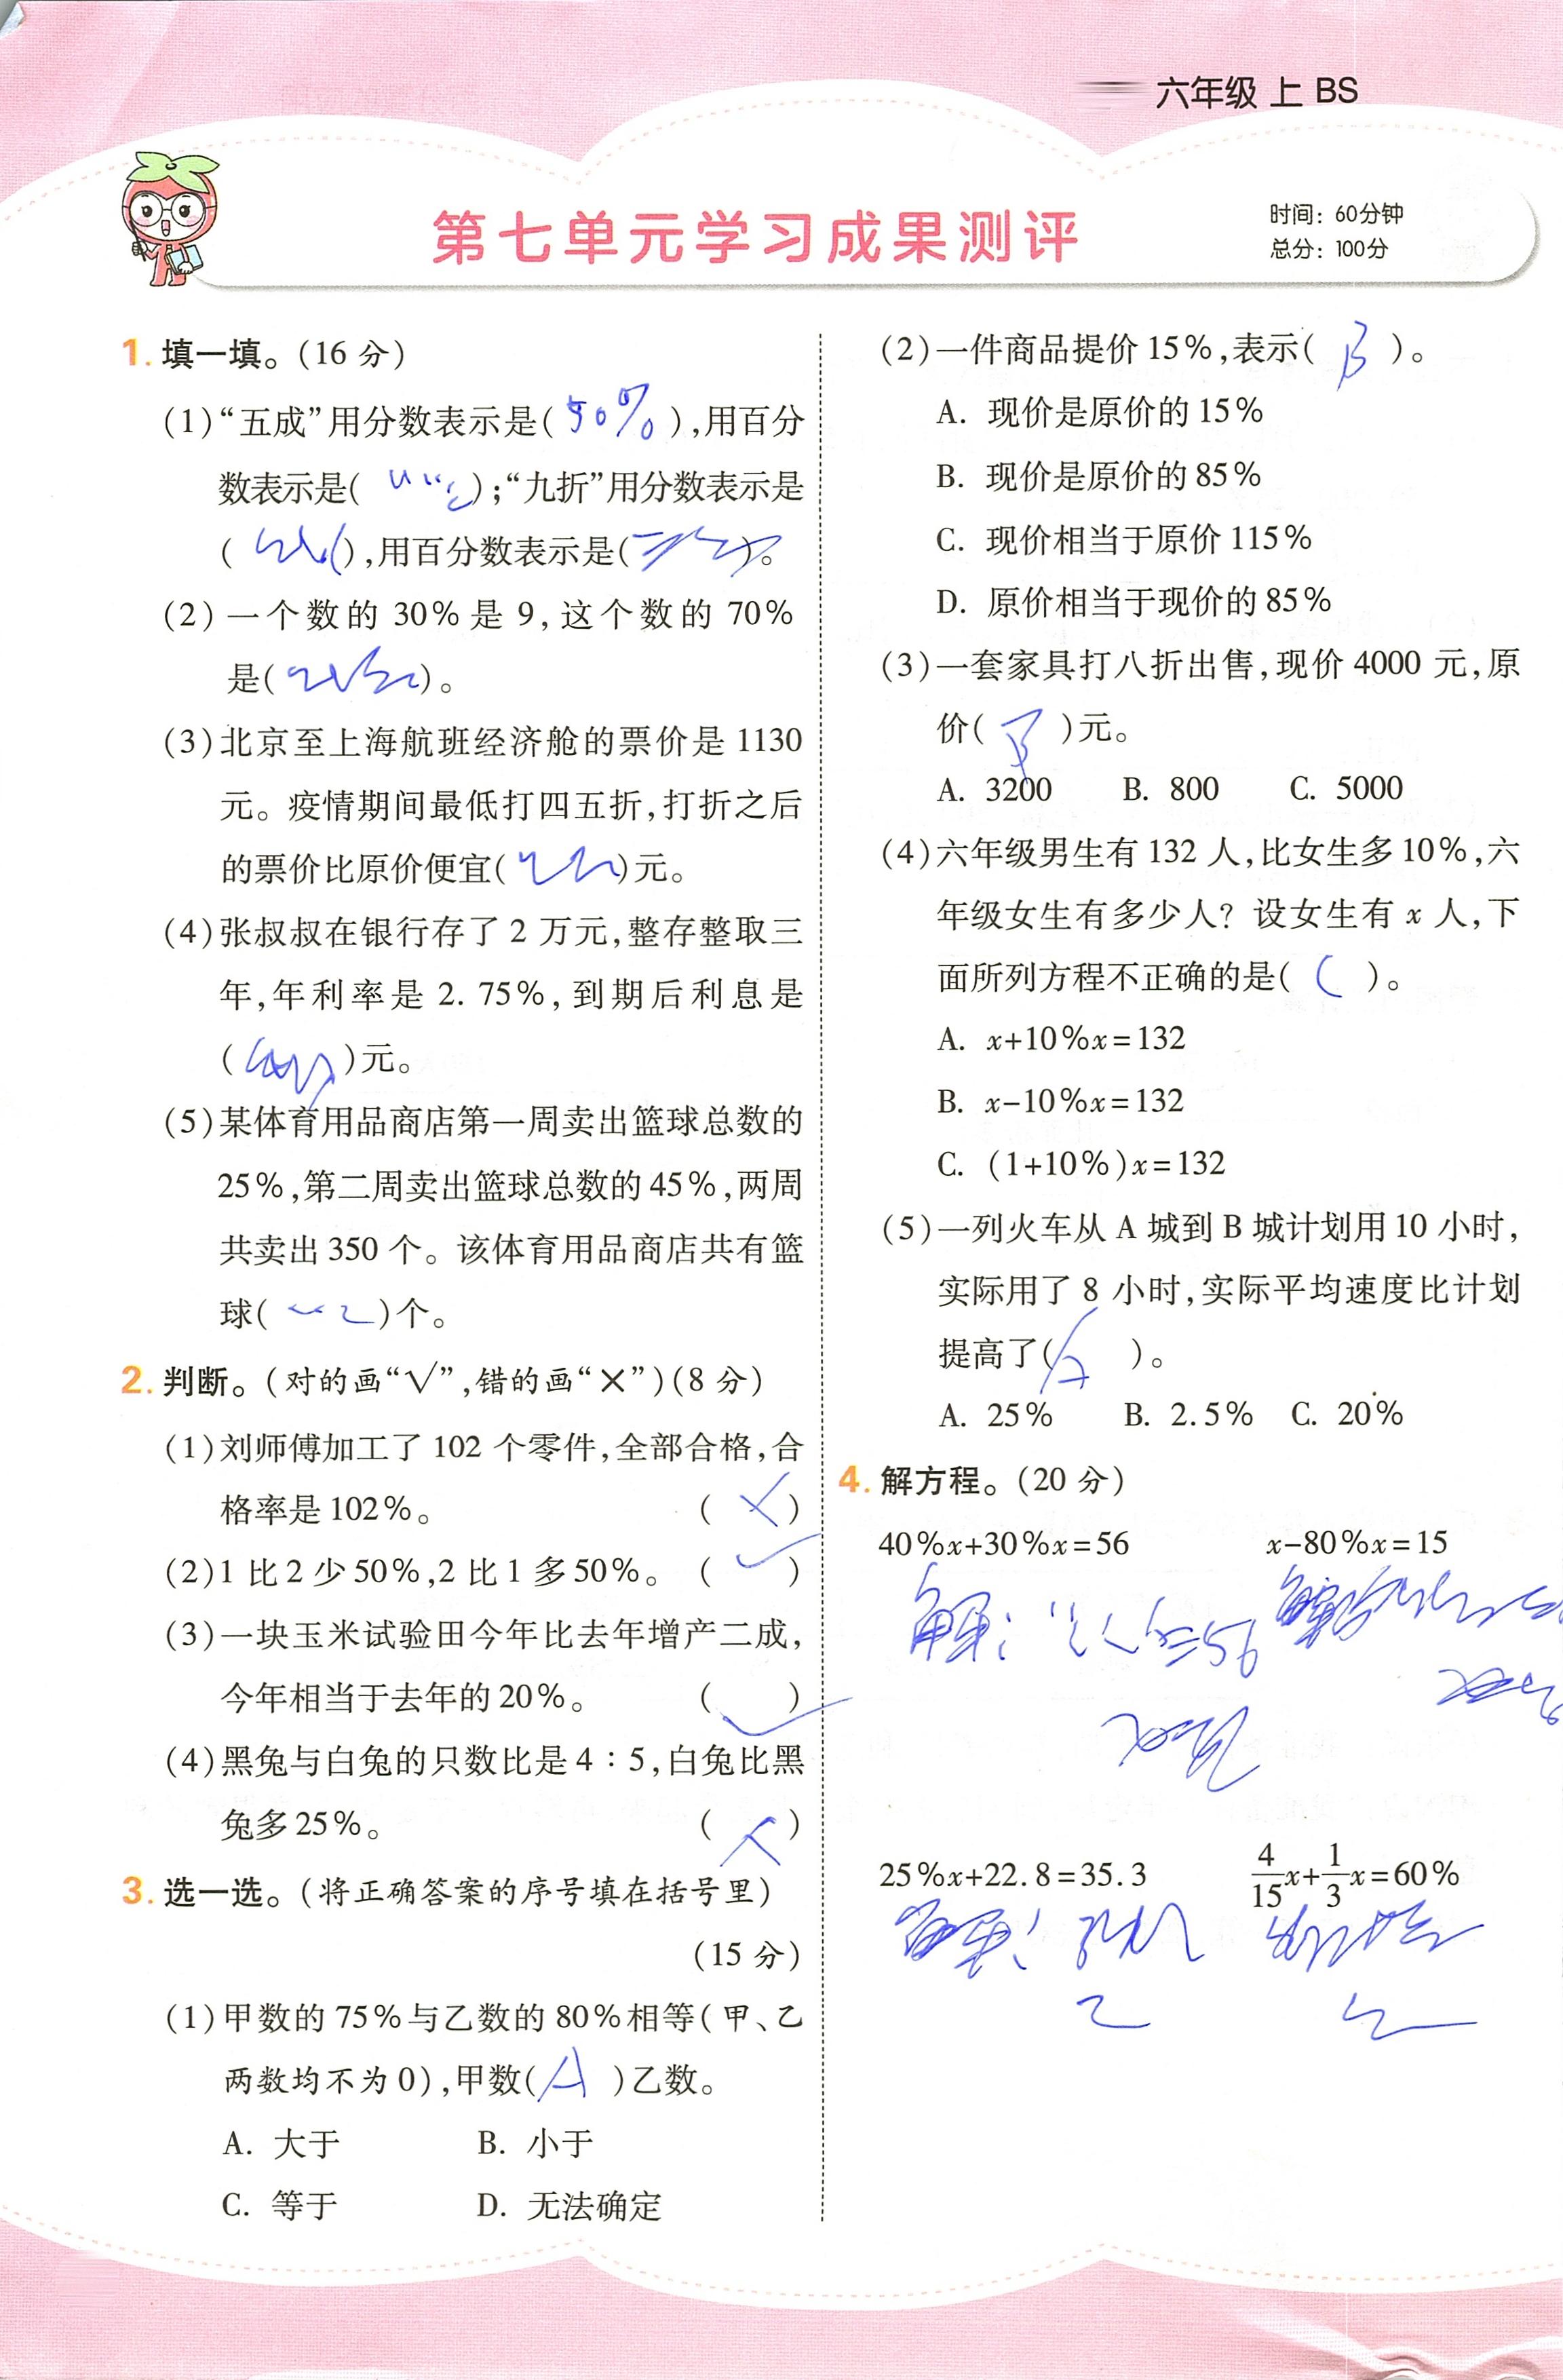 六年级 上 BS
第七单元学习成果测评
时间：60分钟
总分：100分
1. 填一填。(16 分)
(1)“五成”用分数表示是( 50% ),用百分
数表示是( );“九折”用分数表示是
( ),用百分数表示是( )。
(2)一个数的 30%是 9,这个数的 70%
是( )。
(3)北京至上海航班经济舱的票价是 1130
元。疫情期间最低打四五折,打折之后
的票价比原价便宜( )元。
(4)张叔叔在银行存了 2 万元,整存整取三
年,年利率是 2.75%,到期后利息是
( )元。
(5)某体育用品商店第一周卖出篮球总数的
25%,第二周卖出篮球总数的 45%,两周
共卖出 350 个。该体育用品商店共有篮
球( )个。
2. 判断。(对的画“√”,错的画“×”)(8 分)
(1)刘师傅加工了 102 个零件,全部合格,合
格率是 102%。 ( × )
(2)1 比 2 少 50%,2 比 1 多 50%。 ( √ )
(3)一块玉米试验田今年比去年增产二成,
今年相当于去年的 20%。 ( √ )
(4)黑兔与白兔的只数比是 4∶5,白兔比黑
兔多 25%。 ( × )
3. 选一选。(将正确答案的序号填在括号里)
(15 分)
(1)甲数的 75%与乙数的 80%相等(甲、乙
两数均不为 0),甲数( A )乙数。
A. 大于 B. 小于
C. 等于 D. 无法确定
(2)一件商品提价 15%,表示( B )。
A. 现价是原价的 15%
B. 现价是原价的 85%
C. 现价相当于原价 115%
D. 原价相当于现价的 85%
(3)一套家具打八折出售,现价 4000 元,原
价( B )元。
A. 3200 B. 800 C. 5000
(4)六年级男生有 132 人,比女生多 10%,六
年级女生有多少人? 设女生有 x 人,下
面所列方程不正确的是( C )。
A. x+10%x=132
B. x-10%x=132
C. (1+10%)x=132
(5)一列火车从 A 城到 B 城计划用 10 小时,
实际用了 8 小时,实际平均速度比计划
提高了( A )。
A. 25% B. 2.5% C. 20%
4. 解方程。(20 分)
40%x+30%x=56 x-80%x=15
解：
25%x+22.8=35.3 4/15x+1/3x=60%
解：